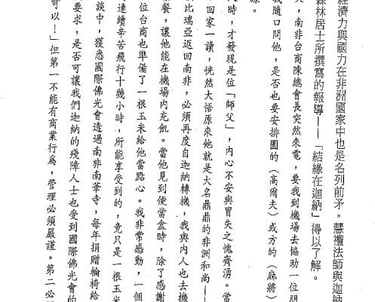 經濟力與國力在非洲國家中也是名列前矛。慧禮法師與迦納
森林居士所撰寫的報導——「結緣在迦納」得以了解。
，南非台商陳總會長突然來電，要我到機場去協助一位朋
我隨口問他，是否也要安排圓的（高爾夫）或方的（麻將）
時，才發現是位「師父」，內心不安與冒失之愧齊湧。當
回家一讀，恍然大悟原來他就是大名鼎鼎的非洲和尚—
比瑞亞返回南非，必須再度自迦納轉機，我與內人也去機
餐，讓他能在機場內充飢。當他見到便當盒時，除了感謝
位台商也準備了一根玉米給他當點心。我非常感動，一個
連續辛苦飛行十幾小時，所能享受到的，竟只是一根玉米
談中，獲悉國際佛光會透過南非南華寺，每年捐贈輪椅給
要求，是否可讓我們迦納的殘障人士也受到國際佛光會的
可以—」但第一不能有商業行為，管理必須嚴謹。第二必